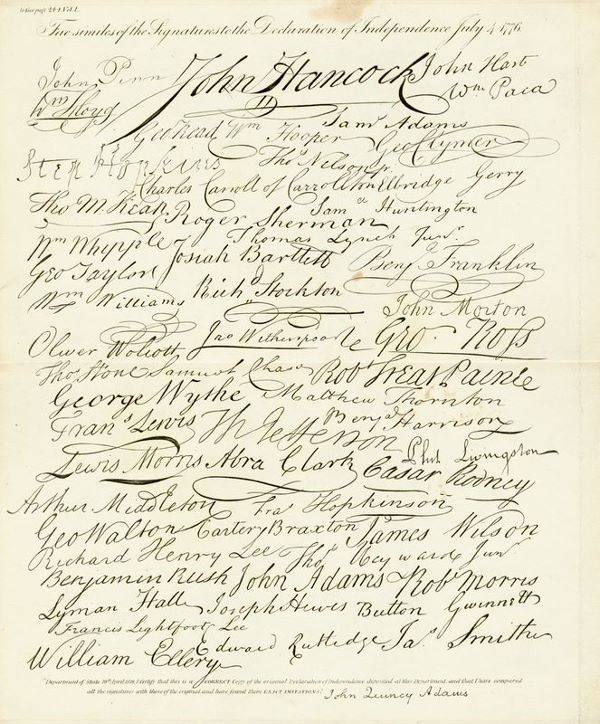 to face page 244 Vol. 1.
Fac similes of the Signatures to the Declaration of Independence July 4, 1776.
John Penn John Hancock John Hart
Wm Floyd Wm Paca
Geo Read Wm Hooper Saml Adams Geo Clymer
Step Hopkins Thos Nelson jr.
Charles Carroll of Carrollton Elbridge Gerry
Tho M.Kean Roger Sherman Saml Huntington
Wm Whipple Josiah Bartlett Thomas Lynch Junr. Benja Franklin
Geo Taylor Richd Stockton
Wm Williams John Morton
Oliver Wolcott Jno Witherspoon Geo. Ross
Thos Stone Samuel Chase Robt Treat Paine
George Wythe Matthew Thornton
Frans Lewis Th Jefferson Benja Harrison
Lewis Morris Abra Clark Phil Livingston
Cæsar Rodney
Arthur Middleton Fras Hopkinson
Geo Walton Carter Braxton James Wilson
Richard Henry Lee Thos Heyward Junr.
Benjamin Rush John Adams Robt Morris
Lyman Hall Joseph Hewes Button Gwinnett
Francis Lightfoot Lee
William Ellery Edward Rutledge Jas Smith
Department of State 19th April 1819, I certify that this is a CORRECT Copy of the original Declaration of Independence deposited at this Department and that I have compared
all the signatures with those of the original and have found them EXACT IMITATIONS. John Quincy Adams